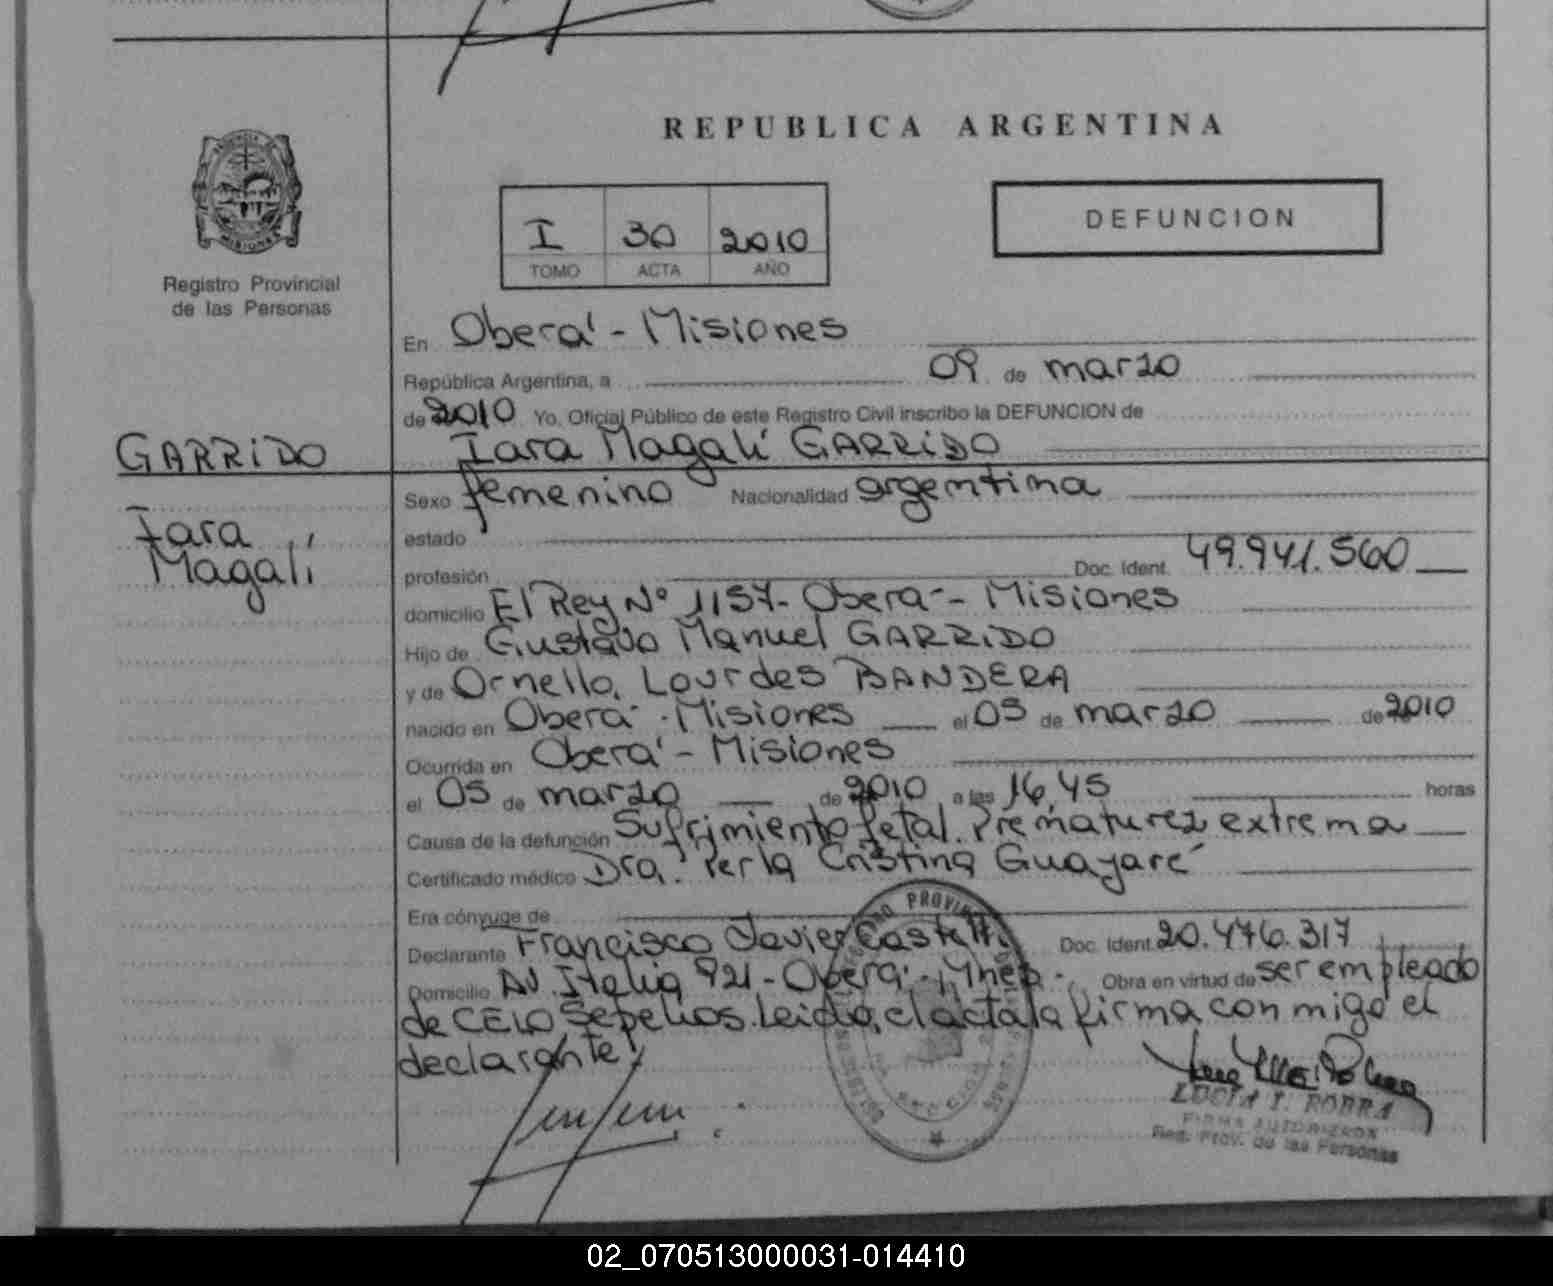 REPUBLICA ARGENTINA
I 30 2010
TOMO ACTA AÑO
DEFUNCION
Registro Provincial
de las Personas
En Oberá - Misiones
República Argentina, a 09 de marzo
de 2010 Yo, Oficial Público de este Registro Civil inscribo la DEFUNCION de
GARRIDO
Iara Magalí GARRIDO
Iara
Magalí
Sexo femenino Nacionalidad argentina
estado
profesión Doc. Ident. 49.941.560
domicilio El Rey Nº 1157- Oberá - Misiones
Hijo de Gustavo Manuel GARRIDO
y de Ornella Lourdes BANDERA
nacido en Oberá - Misiones el 05 de marzo de 2010
Ocurrida en Oberá - Misiones
el 05 de marzo de 2010 a las 16,45 horas
Causa de la defunción Sufrimiento fetal. Prematurez extrema
Certificado médico Dra. Perla Cristina Guayaré
Era cónyuge de
Declarante Francisco Javier Doc. Ident. 20.476.317
Domicilio Av. Italia 921 - Oberá - Mnes - Obra en virtud de ser empleado
de CELO Sepelios. Leida el acta la firma conmigo el
declarante
LUCIA I. ROBRA
FIRMA AUTORIZADA
Reg. Prov. de las Personas
02_070513000031-014410